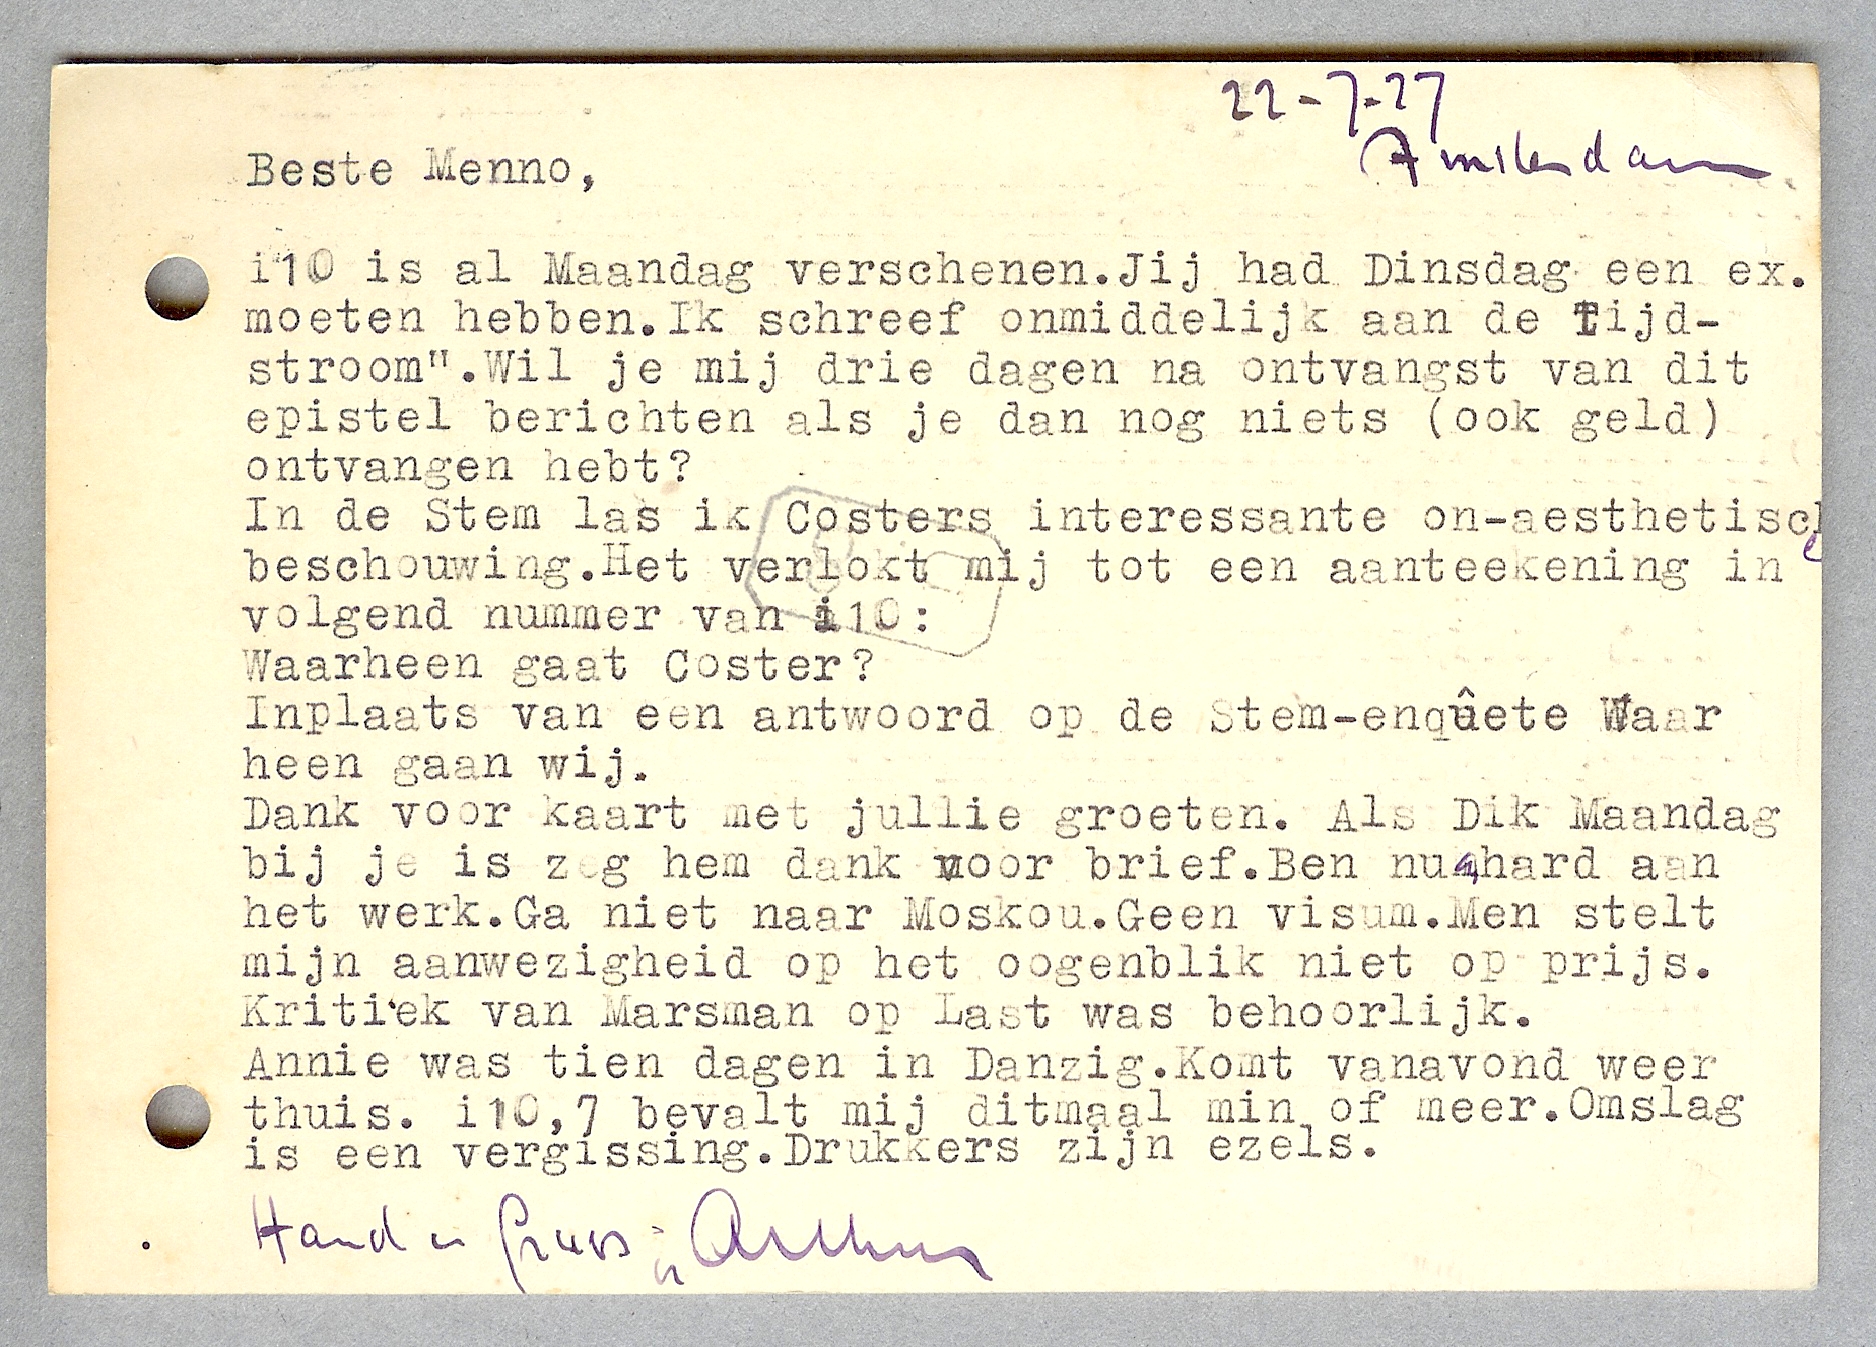 22-7-27
Amsterdam
Beste Menno,
i10 is al Maandag verschenen.Jij had Dinsdag een ex.
moeten hebben.Ik schreef onmiddelijk aan de Tijd-
stroom".Wil je mij drie dagen na ontvangst van dit
epistel berichten als je dan nog niets (ook geld)
ontvangen hebt?
In de Stem las ik Costers interessante on-aesthetisch
e
beschouwing.Het verlokt mij tot een aanteekening in
volgend nummer van i10:
Waarheen gaat Coster?
Inplaats van een antwoord op de Stem-enqûete Waar
heen gaan wij.
Dank voor kaart met jullie groeten. Als Dik Maandag
bij je is zeg hem dank voor brief.Ben nu hard aan
het werk.Ga niet naar Moskou.Geen visum.Men stelt
mijn aanwezigheid op het oogenblik niet op prijs.
Kritiek van Marsman op Last was behoorlijk.
Annie was tien dagen in Danzig.Komt vanavond weer
thuis. i10,7 bevalt mij ditmaal min of meer.Omslag
is een vergissing.Drukkers zijn ezels.
Hand en Arthur